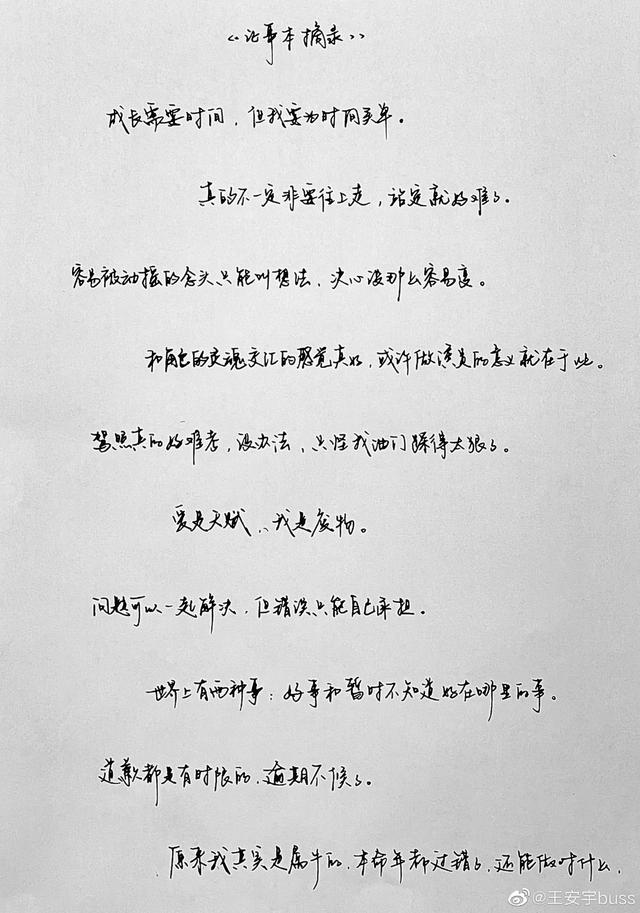 《记事本摘录》
成长需要时间，但我要为时间买单。
真的不一定非要往上走，站定就好难了。
容易被动摇的念头只能叫想法，决心没那么容易变。
和角色的灵魂交汇的感觉真好，或许做演员的意义就在于此。
驾照真的好难考，没办法，只怪我油门踩得太狠了。
爱是天赋，我是废物。
问题可以一起解决，但错误只能自己承担。
世界上有两种事：好事和暂时不知道好在哪里的事。
道歉都是有时限的，逾期不候了。
原来我真实是属牛的，本命年都过错了，还能做对什么。
@王安宇buss